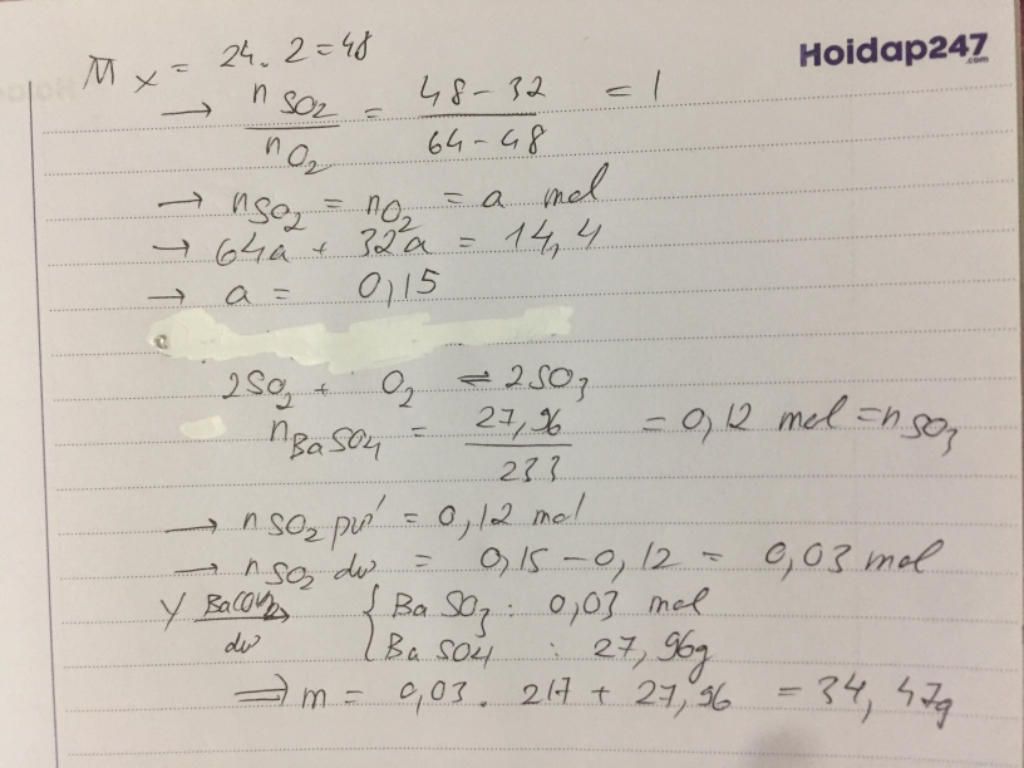 Hoidap247
.com
M X = 24. 2 = 48
→ n SO2 / n O2 = 48 - 32 / 64 - 48 = 1
→ nSO2 = nO2 = a mol
→ 64a + 32a = 14,4
→ a = 0,15
2SO2 + O2 ⇌ 2SO3
nBaSO4 = 27,96 / 233 = 0,12 mol = nSO3
→ nSO2 pứ = 0,12 mol
→ nSO2 dư = 0,15 - 0,12 = 0,03 mol
Y Ba(OH)2 dư → { BaSO3 : 0,03 mol
BaSO4 : 27,96g
⇒ m = 0,03. 217 + 27,96 = 34,47g